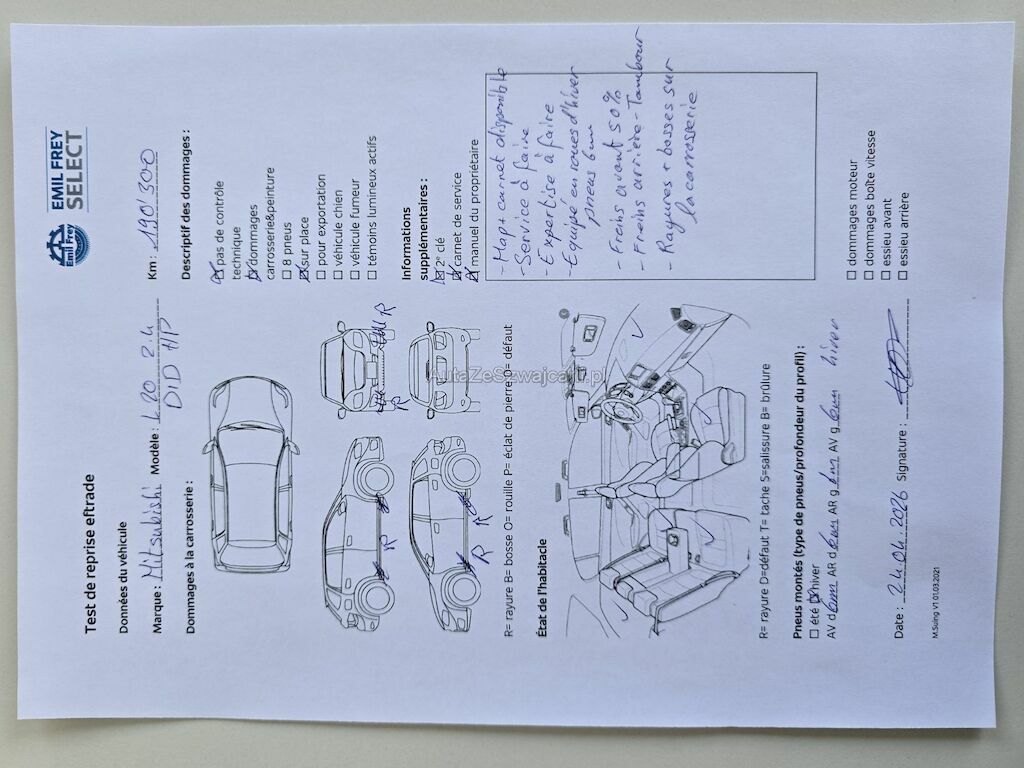 Emil Frey
EMIL FREY
SELECT
Test de reprise eftrade
Données du véhicule
Marque : Mitsubishi Modèle : L 20 2.4 Km : 190'300
DID HP
Dommages à la carrosserie :
Descriptif des dommages :
pas de contrôle
technique
dommages
carrosserie&peinture
☐ 8 pneus
sur place
☐ pour exportation
☐ véhicule chien
☐ véhicule fumeur
☐ témoins lumineux actifs
R
R
R
R
R
Informations
supplémentaires :
2° clé
carnet de service
manuel du propriétaire
R= rayure B= bosse O= rouille P= éclat de pierre D= défaut
- Map + carnet disponible
- Service à faire
- Expertise à faire
- Equipé en roues d'hiver
pneus 6mm
- Freins avant 50%
- Freins arrière - Tambour
- Rayures + bosses sur
la carrosserie
État de l'habitacle
AutaZeSzwajcarii.pl
R= rayure D=défaut T= tache S=salissure B= brûlure
Pneus montés (type de pneus/profondeur du profil) :
☐ été hiver
AV d 6mm AR d 6mm AR g 6mm AV g 6mm hiver
☐ dommages moteur
☐ dommages boîte vitesse
☐ essieu avant
☐ essieu arrière
Date : 24.04.2026 Signature :
M.Suing V1 01.03.2021